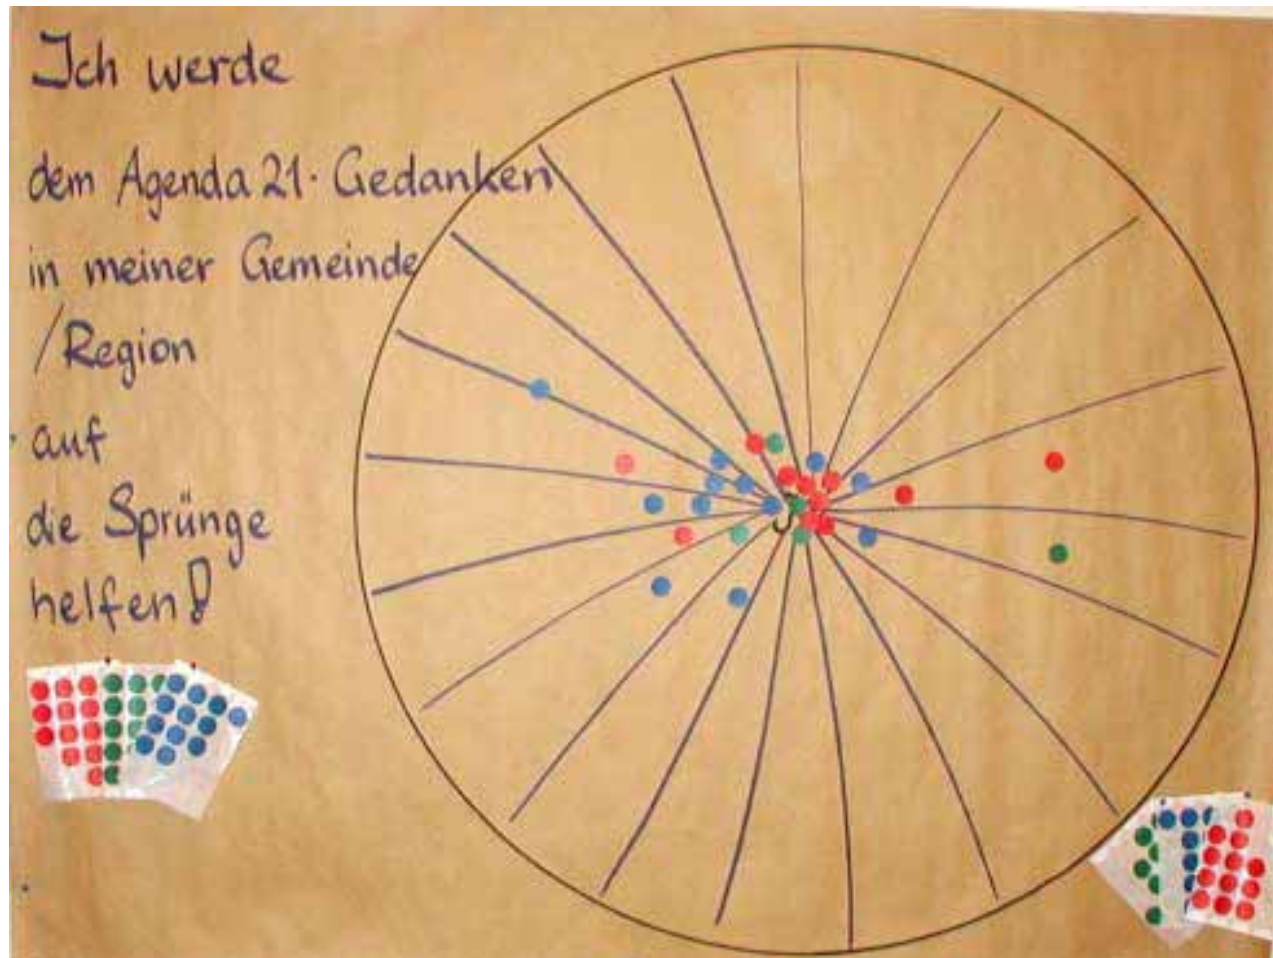 Ich werde
dem Agenda 21 · Gedanken
in meiner Gemeinde
/Region
auf
die Sprünge
helfen!